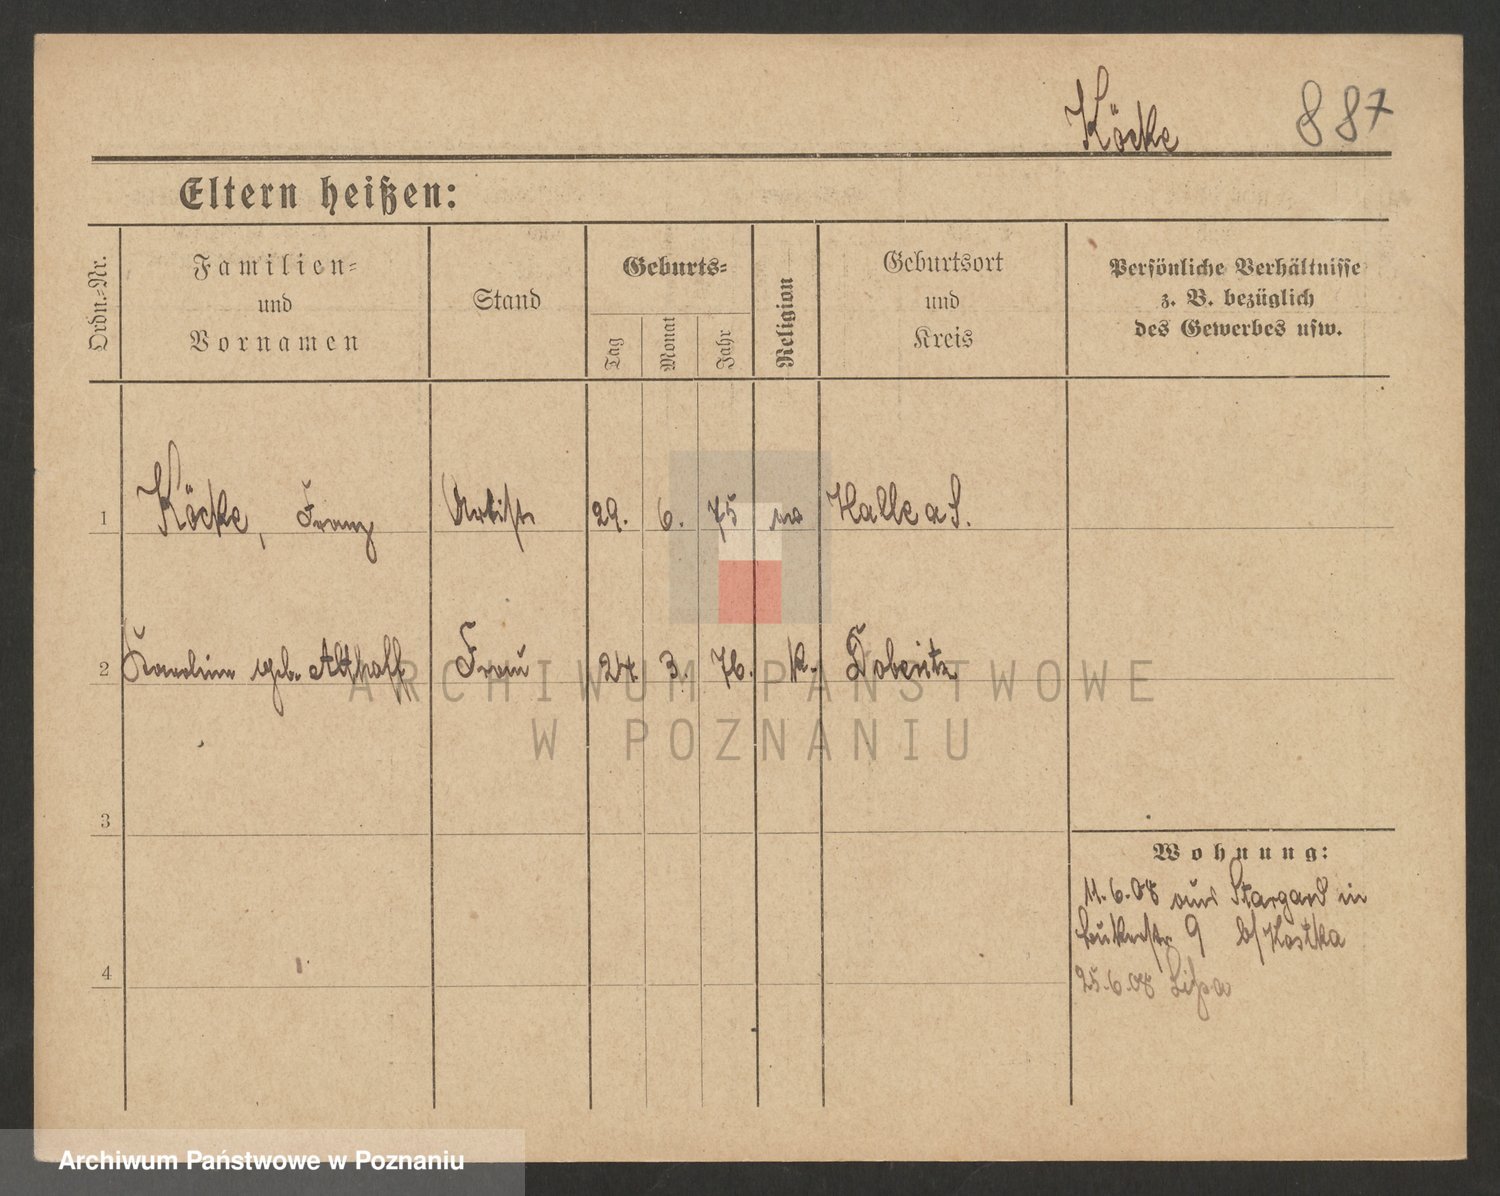 Köcke 887
Eltern heißen:
Ordn.-Nr.
Familien-
und
Vornamen
Stand
Geburts-
Tag
Monat
Jahr
Religion
Geburtsort
und
Kreis
Persönliche Verhältnisse
z. B. bezüglich
des Gewerbes usw.
1 Köcke, Franz Artist 29. 6. 75 Halle a S.
2 Karoline geb. Althoff Frau 24. 3. 76. k. Doberitz
3
4
Wohnung:
11.6.08 aus Stargard in
9 b/Kostka
25.6.08 Lissa
ARCHIWUM PAŃSTWOWE
W POZNANIU
Archiwum Państwowe w Poznaniu